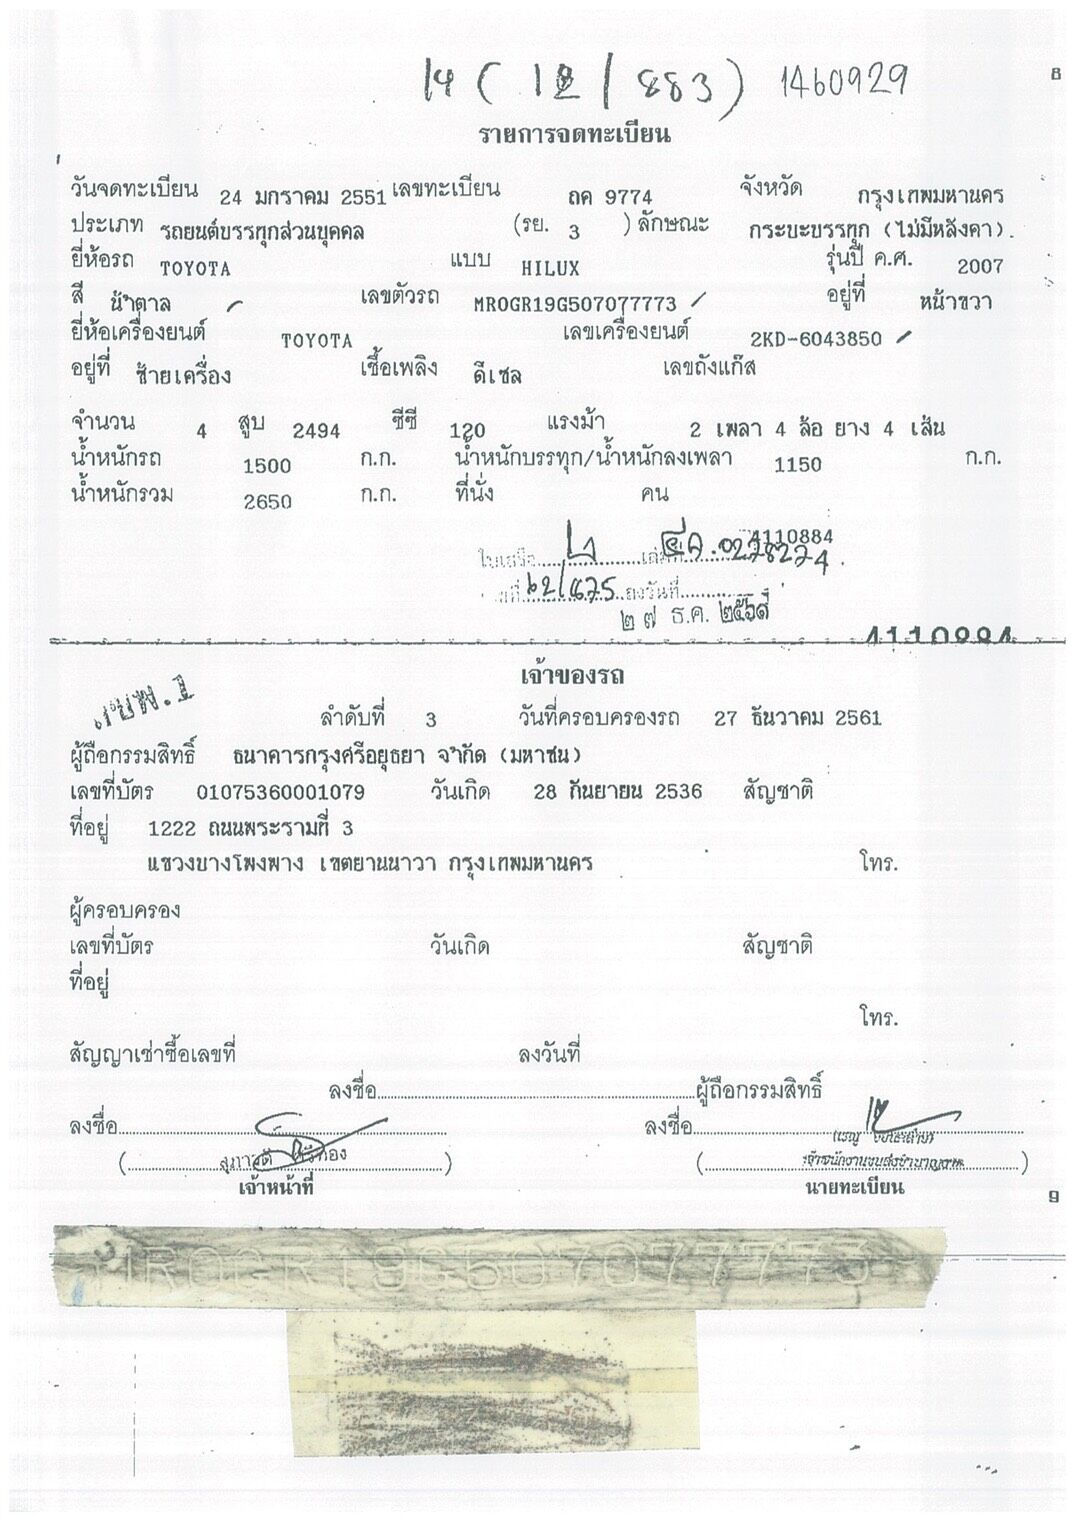 14 (12/883) 1460929
8
รายการจดทะเบียน
วันจดทะเบียน 24 มกราคม 2551 เลขทะเบียน ถค 9774 จังหวัด กรุงเทพมหานคร
ประเภท รถยนต์บรรทุกส่วนบุคคล (รย. 3 ) ลักษณะ กระบะบรรทุก (ไม่มีหลังคา)
ยี่ห้อรถ TOYOTA แบบ HILUX รุ่นปี ค.ศ. 2007
สี น้ำตาล เลขตัวรถ MROGR19G507077773 อยู่ที่ หน้าขวา
ยี่ห้อเครื่องยนต์ TOYOTA เลขเครื่องยนต์ 2KD-6043850
อยู่ที่ ซ้ายเครื่อง เชื้อเพลิง ดีเซล เลขถังแก๊ส
จำนวน 4 สูบ 2494 ซีซี 120 แรงม้า 2 เพลา 4 ล้อ ยาง 4 เส้น
น้ำหนักรถ 1500 ก.ก. น้ำหนักบรรทุก/น้ำหนักลงเพลา 1150 ก.ก.
น้ำหนักรวม 2650 ก.ก. ที่นั่ง คน
4110884
ใบเสร็จ 2 เล่มที่ 0278274
๖๒/875 ลงวันที่
๒๗ ธ.ค. ๒๕๖๑
4110884
เจ้าของรถ
ขพ.1
ลำดับที่ 3 วันที่ครอบครองรถ 27 ธันวาคม 2561
ผู้ถือกรรมสิทธิ์ ธนาคารกรุงศรีอยุธยา จำกัด (มหาชน)
เลขที่บัตร 01075360001079 วันเกิด 28 กันยายน 2536 สัญชาติ
ที่อยู่ 1222 ถนนพระรามที่ 3
แขวงบางโพงพาง เขตยานนาวา กรุงเทพมหานคร โทร.
ผู้ครอบครอง
เลขที่บัตร วันเกิด สัญชาติ
ที่อยู่
โทร.
สัญญาเช่าซื้อเลขที่ ลงวันที่
ลงชื่อ ผู้ถือกรรมสิทธิ์
ลงชื่อ ลงชื่อ
(สุภาวดี) (เจ้าพนักงานขนส่งชำนาญงาน)
เจ้าหน้าที่ นายทะเบียน
9
MROGR19G507077773